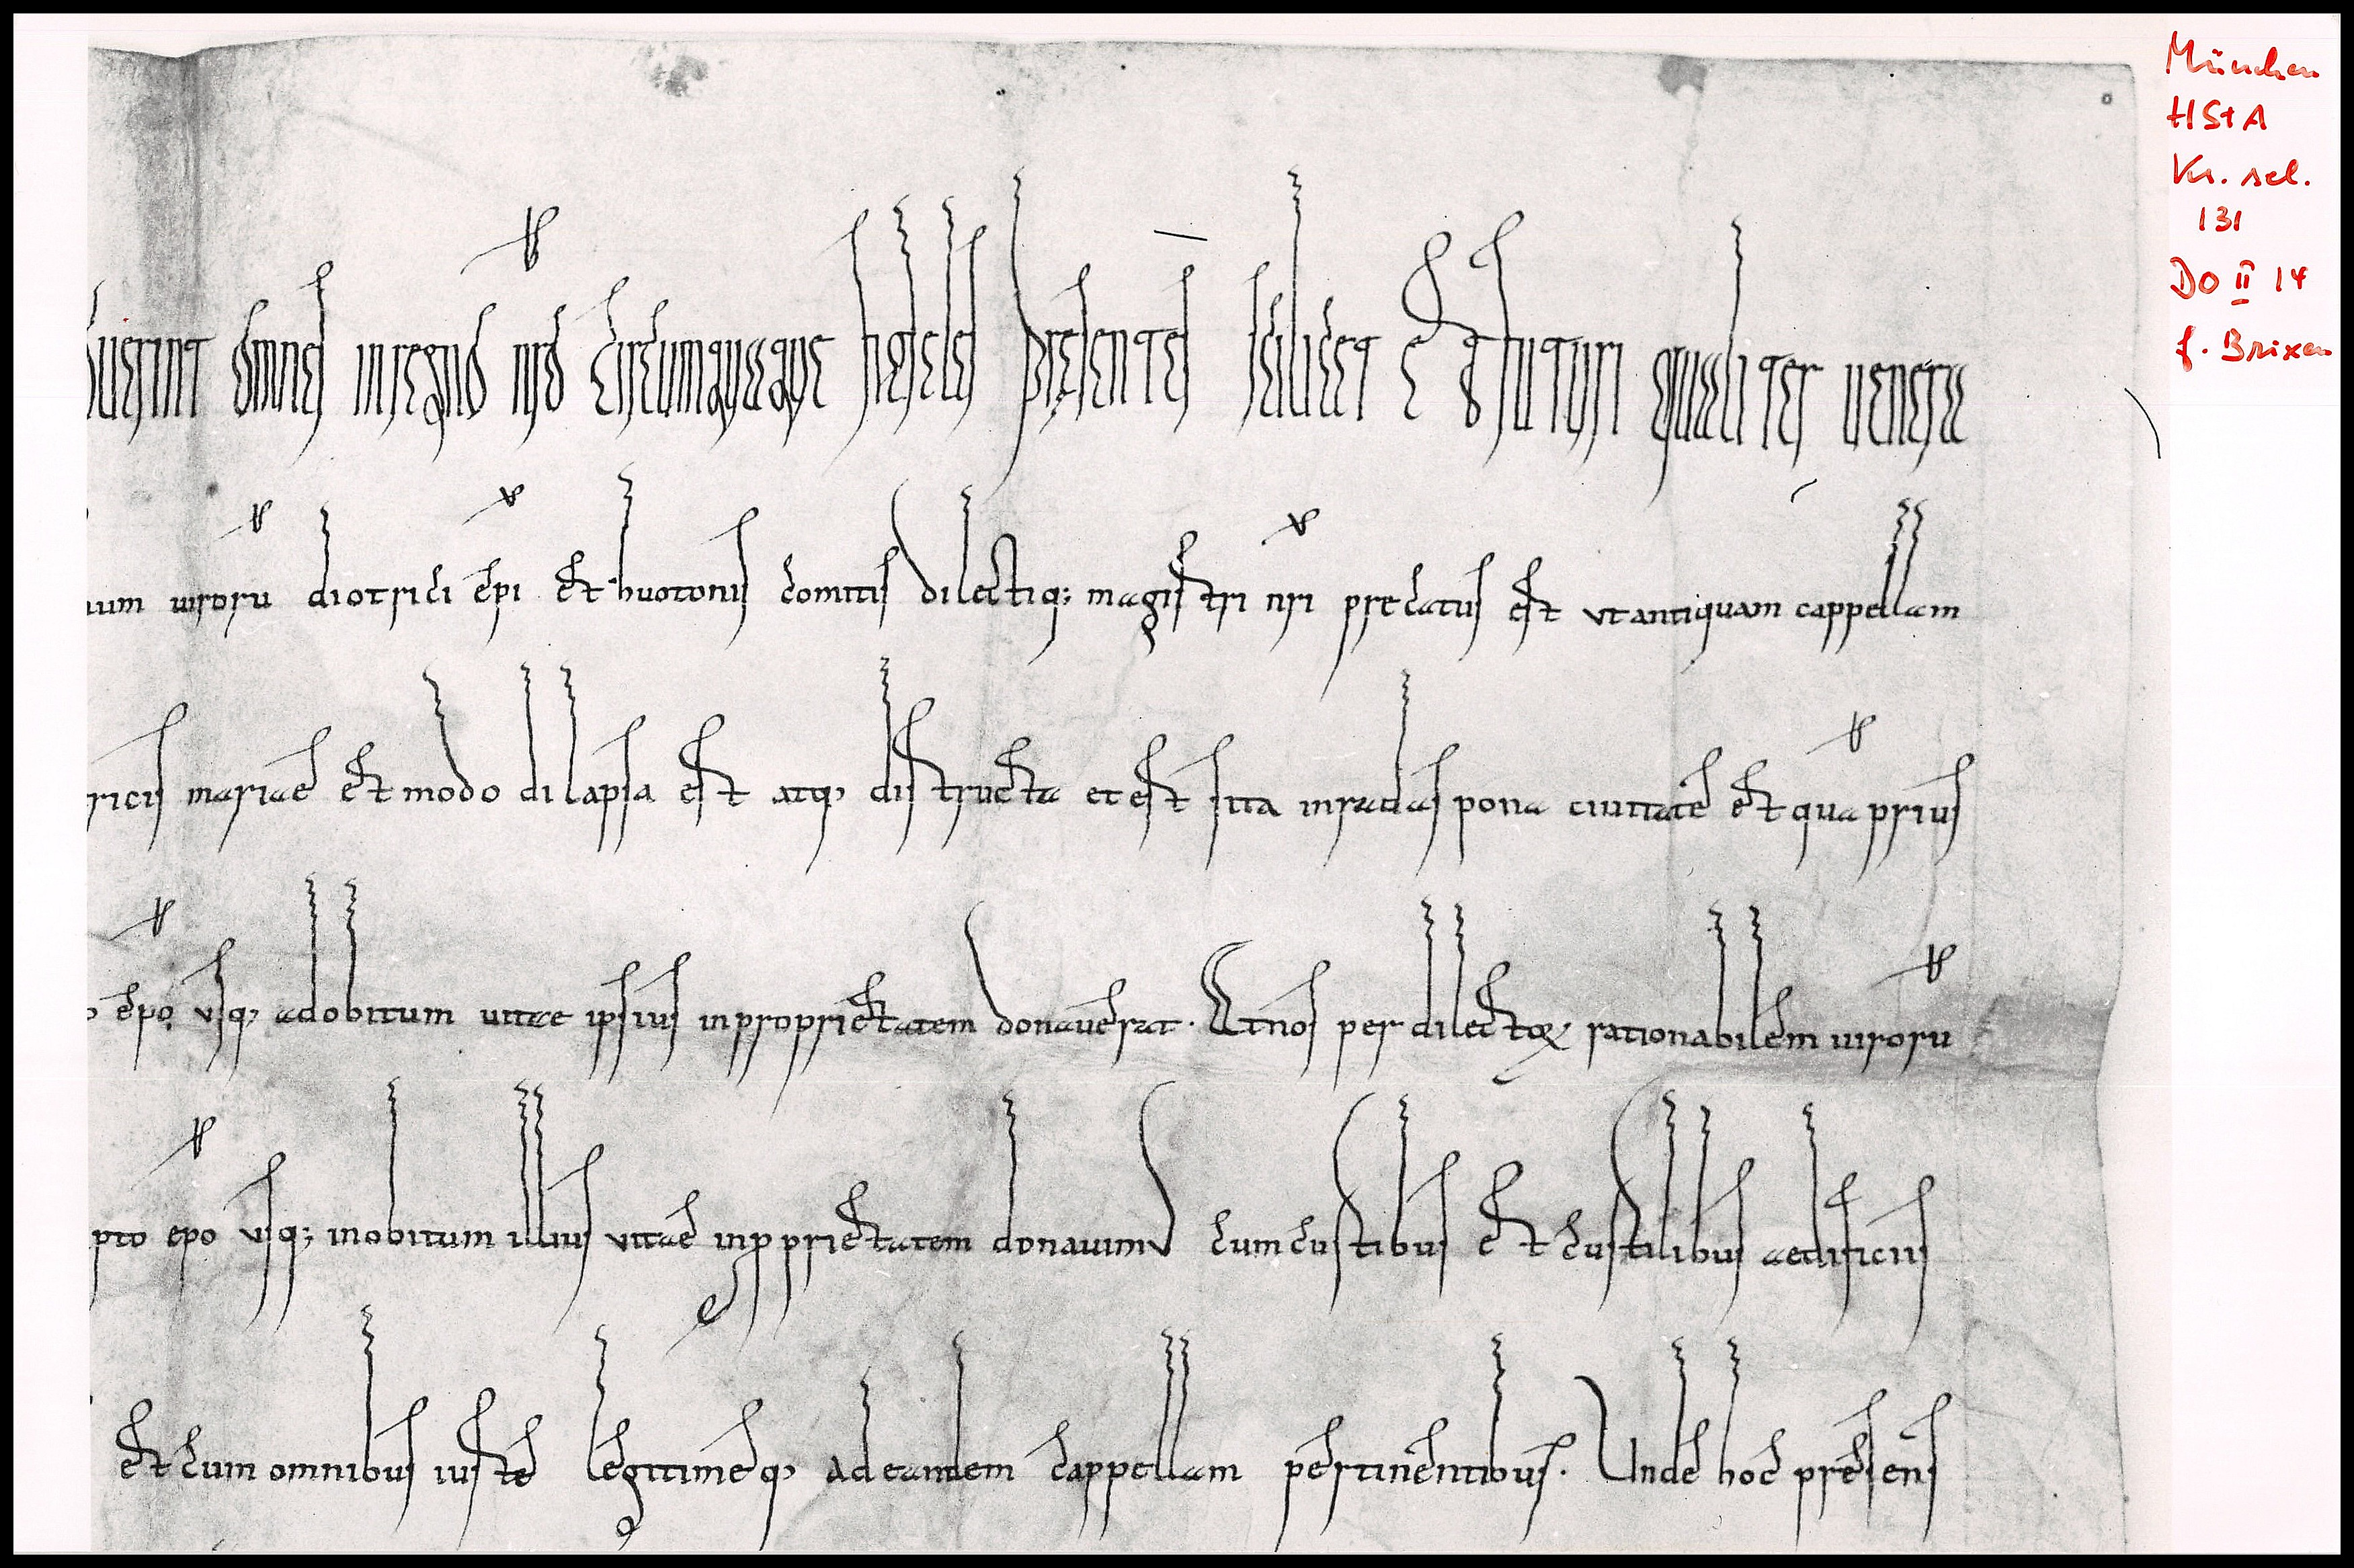 uerint omnes in regno nr̄o circumquaque fideles presentes scilicet et futuri qualiter uenera
uirorū diotrici ep̄i et huotonis comitis dilectiq; magistri nr̄i precatus est ut antiquam cappellam
ricis mariae et modo dilapsa est atq; distructa et est sita in radaspona ciuitatē et qua prius
ep̄o usq; ad obitum uitae ipsius in proprietatem donauerat. Et nos per dilectoꝝ rationabilem uirorū
pto ep̄o usq; in obitum illius uitae in ꝓprietatem donauimus cum curtibus et curtilibus aedificiis
et cum omnibus iuste legitimeq; ad eandem cappellam pertinentibus. Unde hoc presens
München
HStA
Ks. sel.
131
DO II 14
f. Brixen